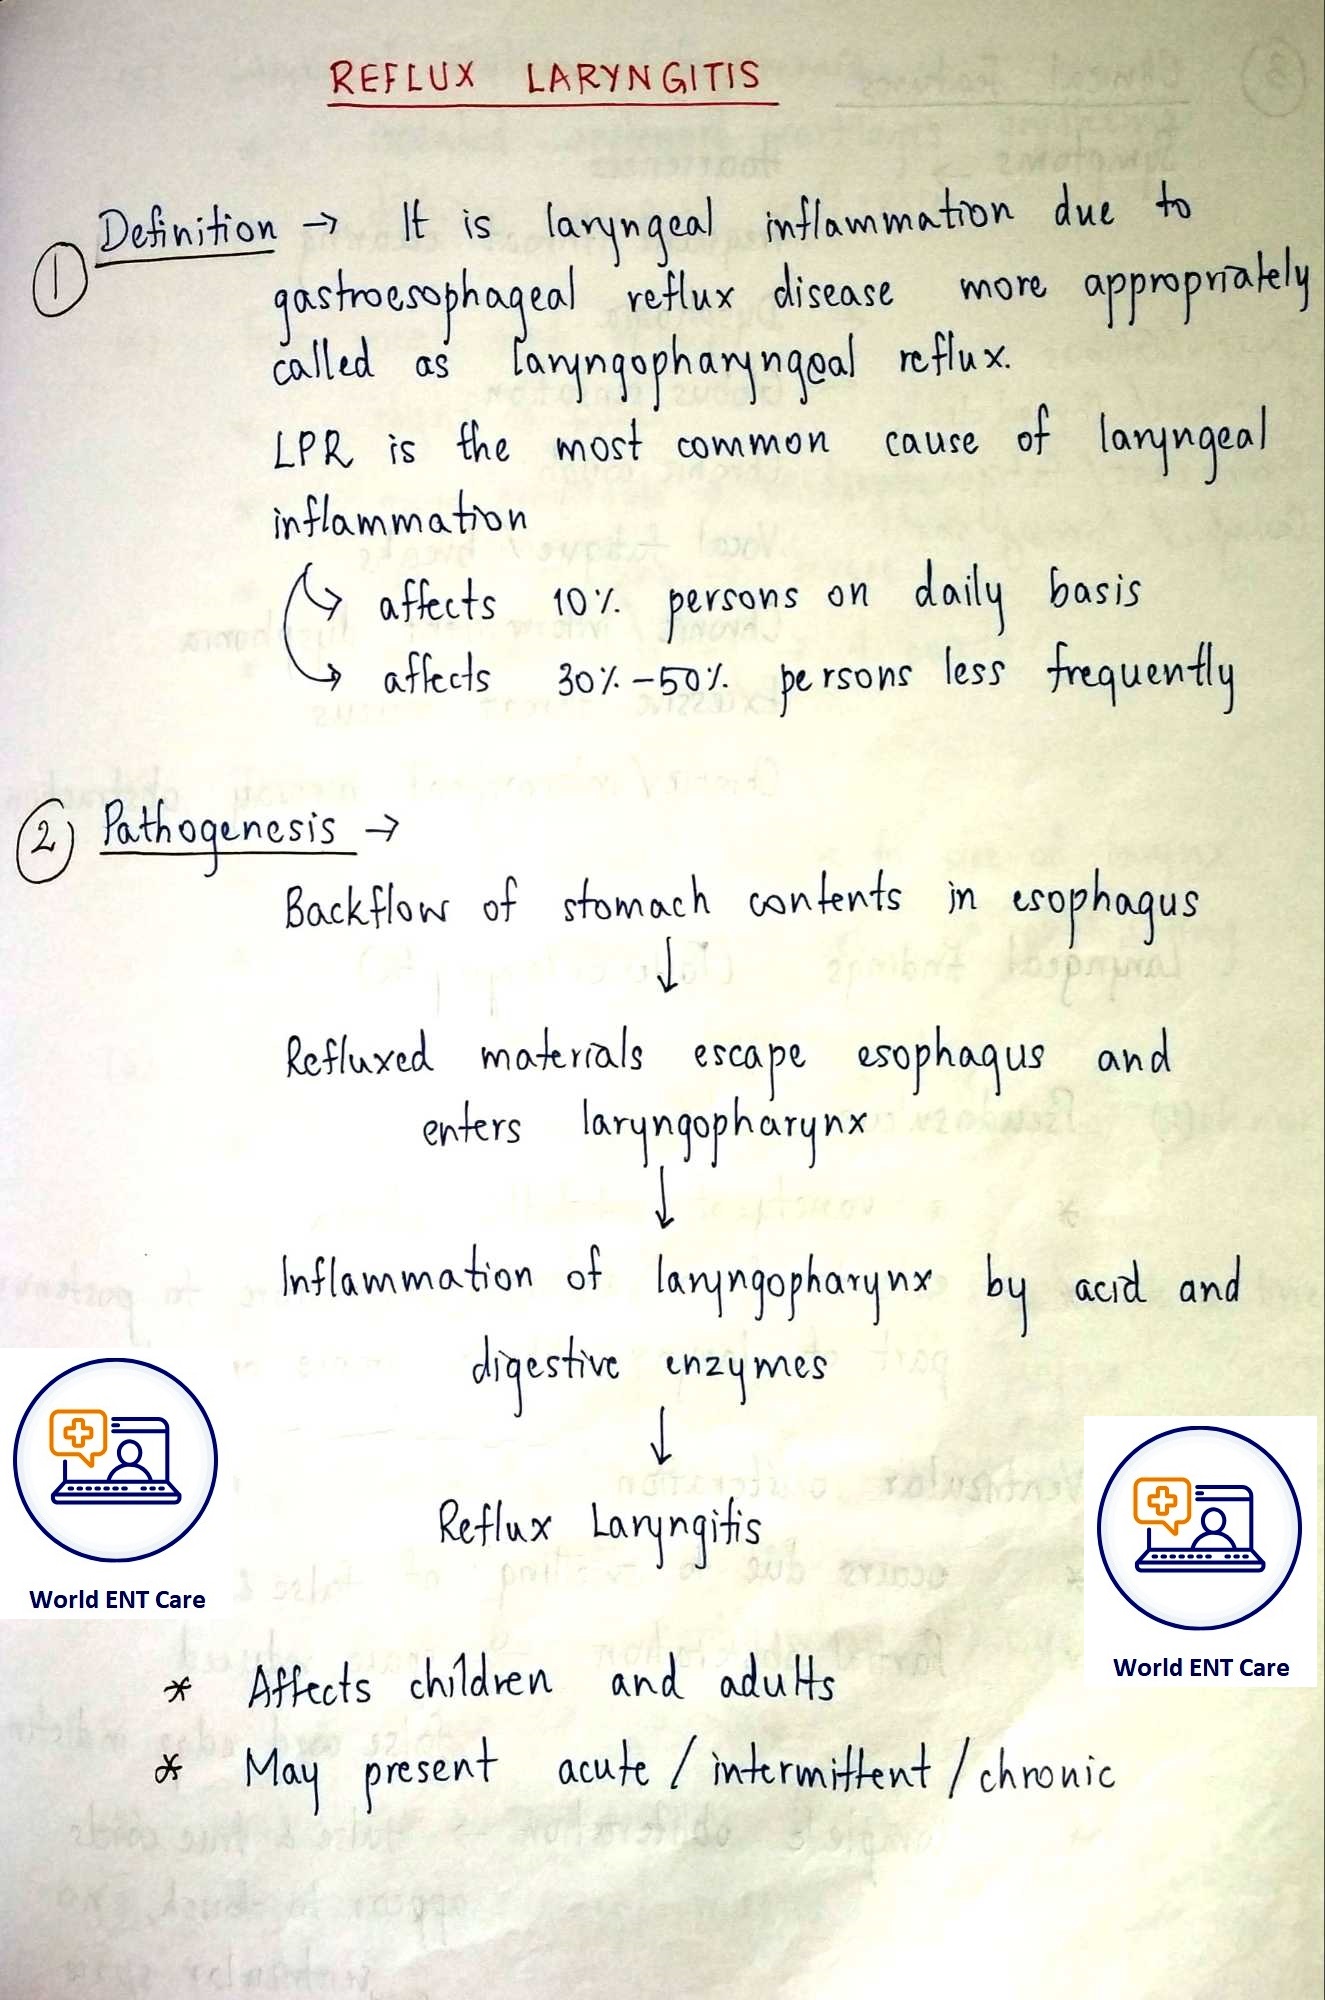 REFLUX LARYNGITIS
① Definition → It is laryngeal inflammation due to
gastroesophageal reflux disease more appropriately
called as laryngopharyngeal reflux.
LPR is the most common cause of laryngeal
inflammation
↳ affects 10% persons on daily basis
↳ affects 30%-50% persons less frequently
② Pathogenesis →
Backflow of stomach contents in esophagus
↓
Refluxed materials escape esophagus and
enters laryngopharynx
↓
Inflammation of laryngopharynx by acid and
digestive enzymes
↓
Reflux Laryngitis
World ENT Care
World ENT Care
* Affects children and adults
* May present acute / intermittent / chronic